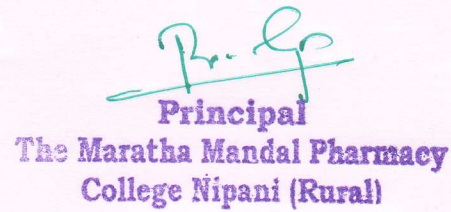 Principal
The Maratha Mandal Pharmacy
College Nipani (Rural)